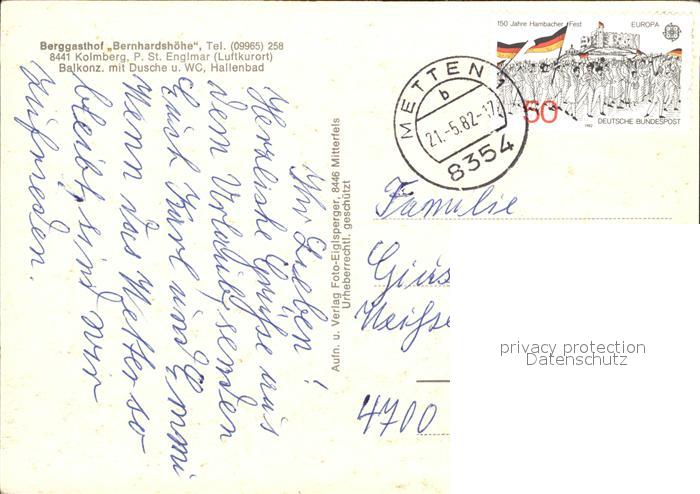 Berggasthof „Bernhardshöhe", Tel. (09965) 258
8441 Kolmberg, P. St. Englmar (Luftkurort)
Balkonz. mit Dusche u. WC, Hallenbad
Ihr Lieben!
Herzliche Grüße aus
dem Urlaub senden
Euch Karl und Emmi
Wenn das Wetter so
bleibt, sind wir
zufrieden.
Aufn. u. Verlag Foto-Eiglsperger, 8446 Mitterfels
Urheberrechtl. geschützt
150 Jahre Hambacher Fest
EUROPA
CEPT
50
1982
DEUTSCHE BUNDESPOST
METTEN
b
21.-5.82-17
8354
Familie
4700
privacy protection
Datenschutz